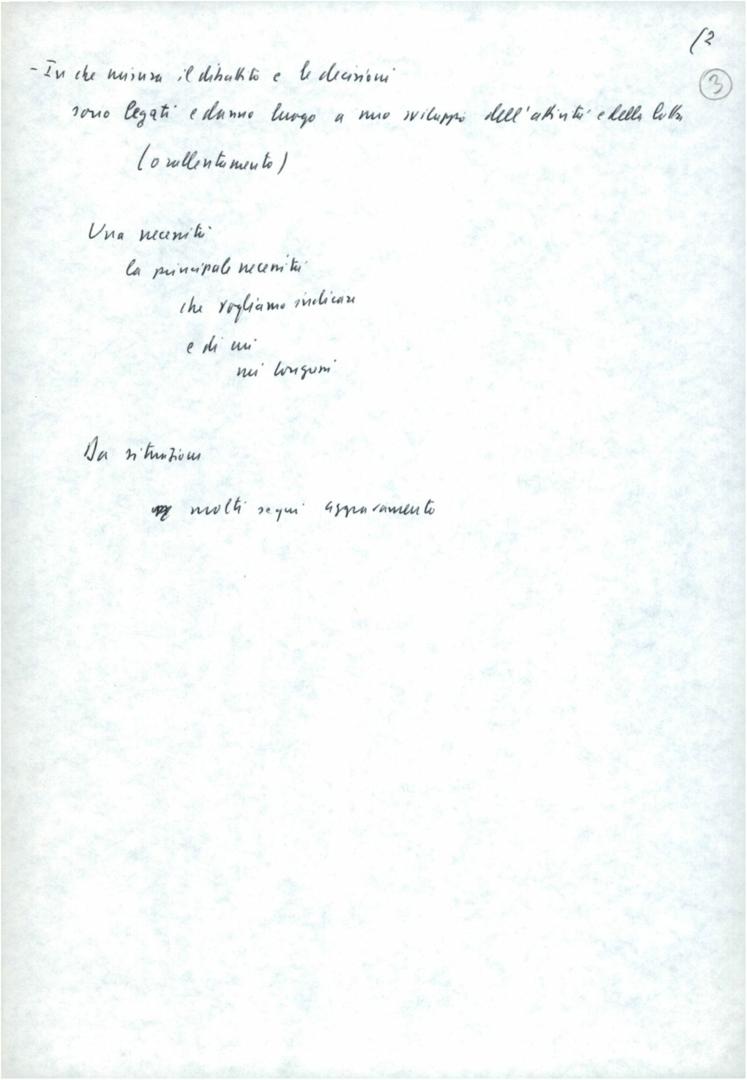 (2
3
- In che misura il dibattito e le decisioni
sono legati e danno luogo a uno sviluppo dell'attività e della lotta
(o rallentamento)
Una necessità
la principale necessità
che vogliamo indicare
e di cui
nei
La situazione
molti segni aggravamento